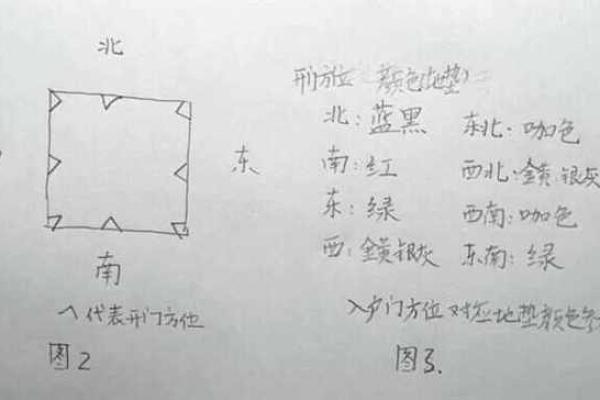 北
东
南
へ代表开门方位
图2
开门方位 颜色(地垫)
北:蓝黑 东北·咖色
南:红 西北·金黄·银灰
东:绿 西南:咖色
西:金黄银灰 东南:绿
入户门方位对应地垫颜色参
图3.